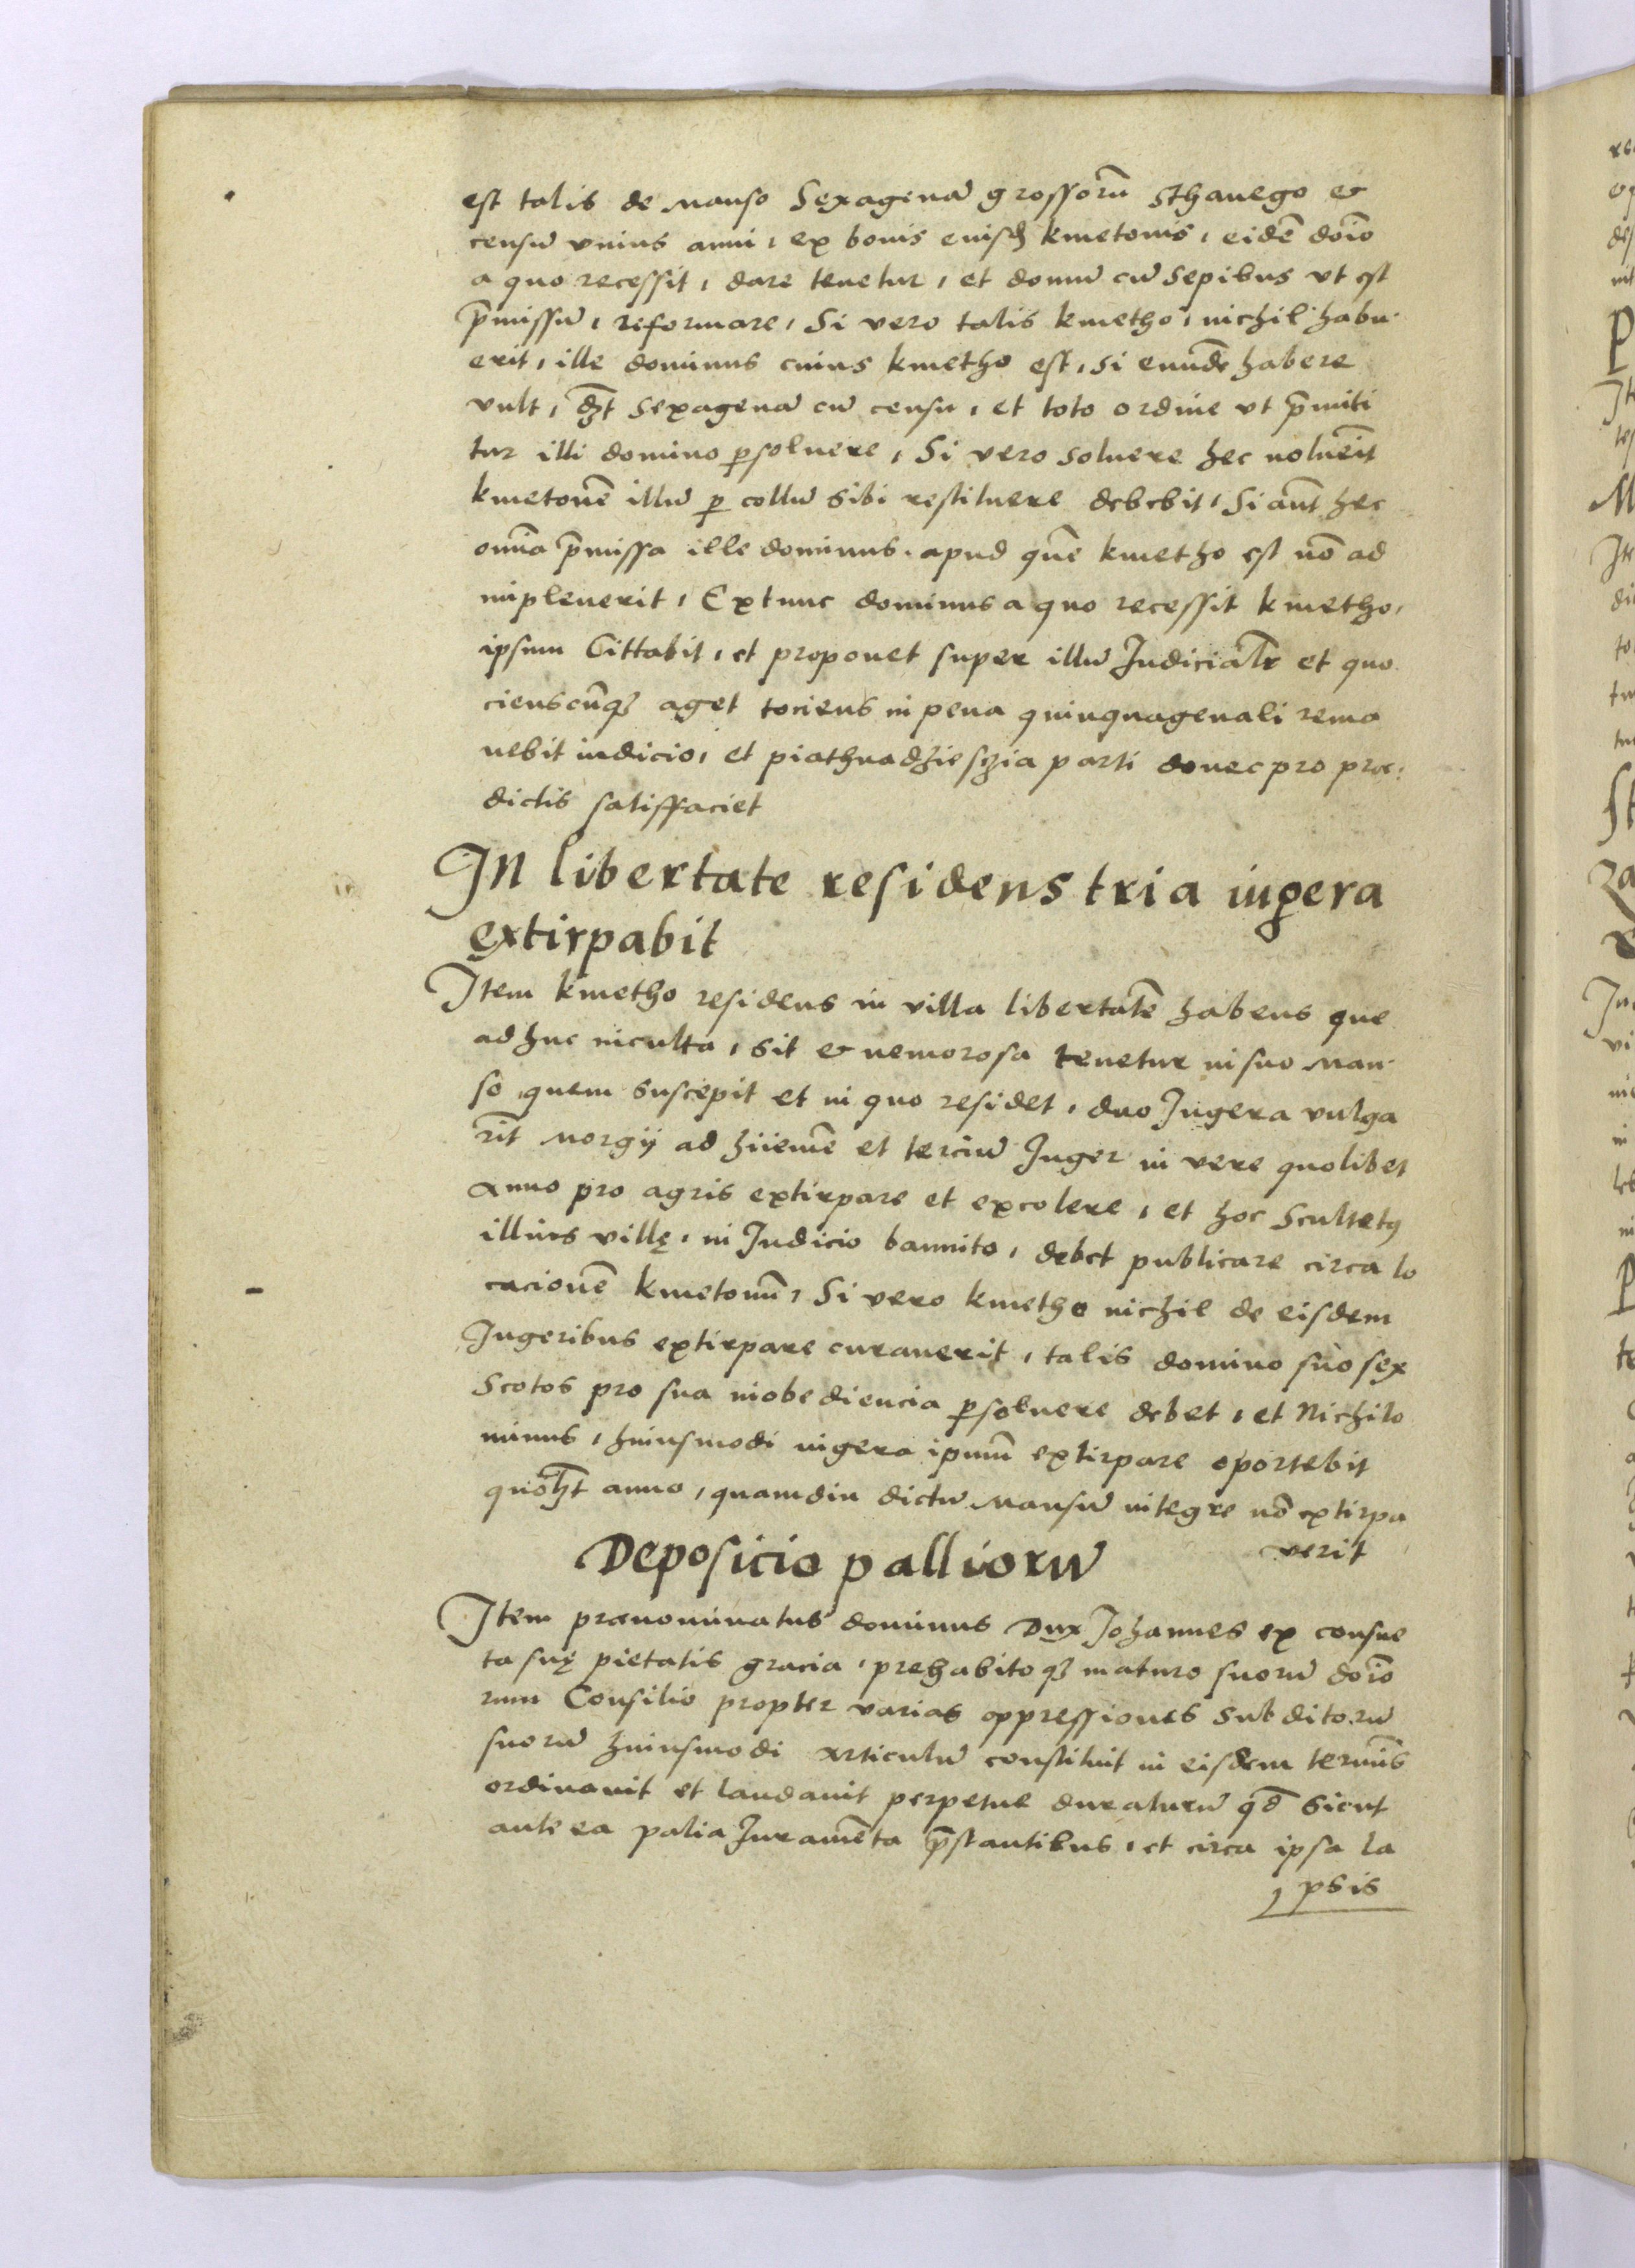 est talis de manso Sexagenā grossorū Sthanego &
censū vnius anni, ex bonis eiusd̄ kmetonis, eidē doīo
a quo recessit, dare tenetur, et domū cū sepibus vt est
p̄missū, reformare, Si vero talis kmetho, nichil habu-
erit, ille dominus cuius kmetho est, si eundē habere
vult, dȝt sexagenā cū censu, et toto ordine vt p̄miti
tur illi domino ꝑsoluere, Si vero soluere hec noluerīt
kmetonē illū ꝑ collū sibi restituere debebit, Si aūt hec
omīa p̄missa ille dominus, apud quē kmetho est nō ad
impleuerit, Extunc dominus a quo recessit kmetho,
ipsum Cittabit, et proponet super illū Judicialr̄ et quo
cienscūqȝ aget tociens in pena quinquagenali rema
nebit iudicio, et piathnadziesczia parti donec pro præ-
dictis satisffaciet
IN libertate residens tria iugera
extirpabit
Item kmetho residens in villa libertatē habens que
adhuc inculta, sit & nemorosa tenetur in suo man-
so, quem suscepit et in quo residet, duo Jugera vulga
rīt morgÿ ad hiiemē et terciū Juger in vere quolibet
Anno pro agris extirpare et excolere, et hoc Scultetꝰ
illius villę, in Judicio bannito, debet publicare circa lo
cacionē kmetonū, Si vero kmetho nichil de eisdem
Jugeribus extirpare curauerit, talis domino suo sex
Scotos pro sua inobediencia ꝑsoluere debet, et Nichilo
minus, huiusmodi iugera ipsum̄ extirpare oportebit
quolȝt anno, quamdiu dictū mansū integre nō extirpa
verit
Deposicio palliorū
Item prænominatus dominus Dux Johannes ex consue
ta suę pietatis gracia, prehabitoqȝ maturo suorū doīo
rum Consilio propter varias oppressiones Subditorū
suorū huiusmodi Articulū constituit in eisdem terminīs
ordinauit et laudauit perpetue duraturū qd̄ Sicut
antea palia Juramēta p̄stantibus, et circa ipsa la
psis